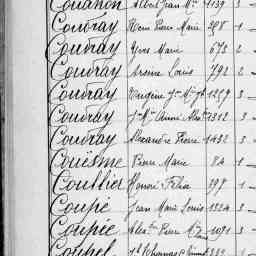 Couanon Albert Jean M. 1139 3
Coudray Pierre Marie 258 1
Coudray Yves Marie 673 2
Coudray Arsène Louis 792 2
Coudray Eugène 1259 3
Coudray 1302 3
Coudray Alexandre Pierre 1432 3
Couësme Pierre Marie 24 1
Couillier Henri Félix 397 1
Coupé Jean Marie Louis 1324 3
Coupée Alex. Pierre M. 1091 3
Coupel